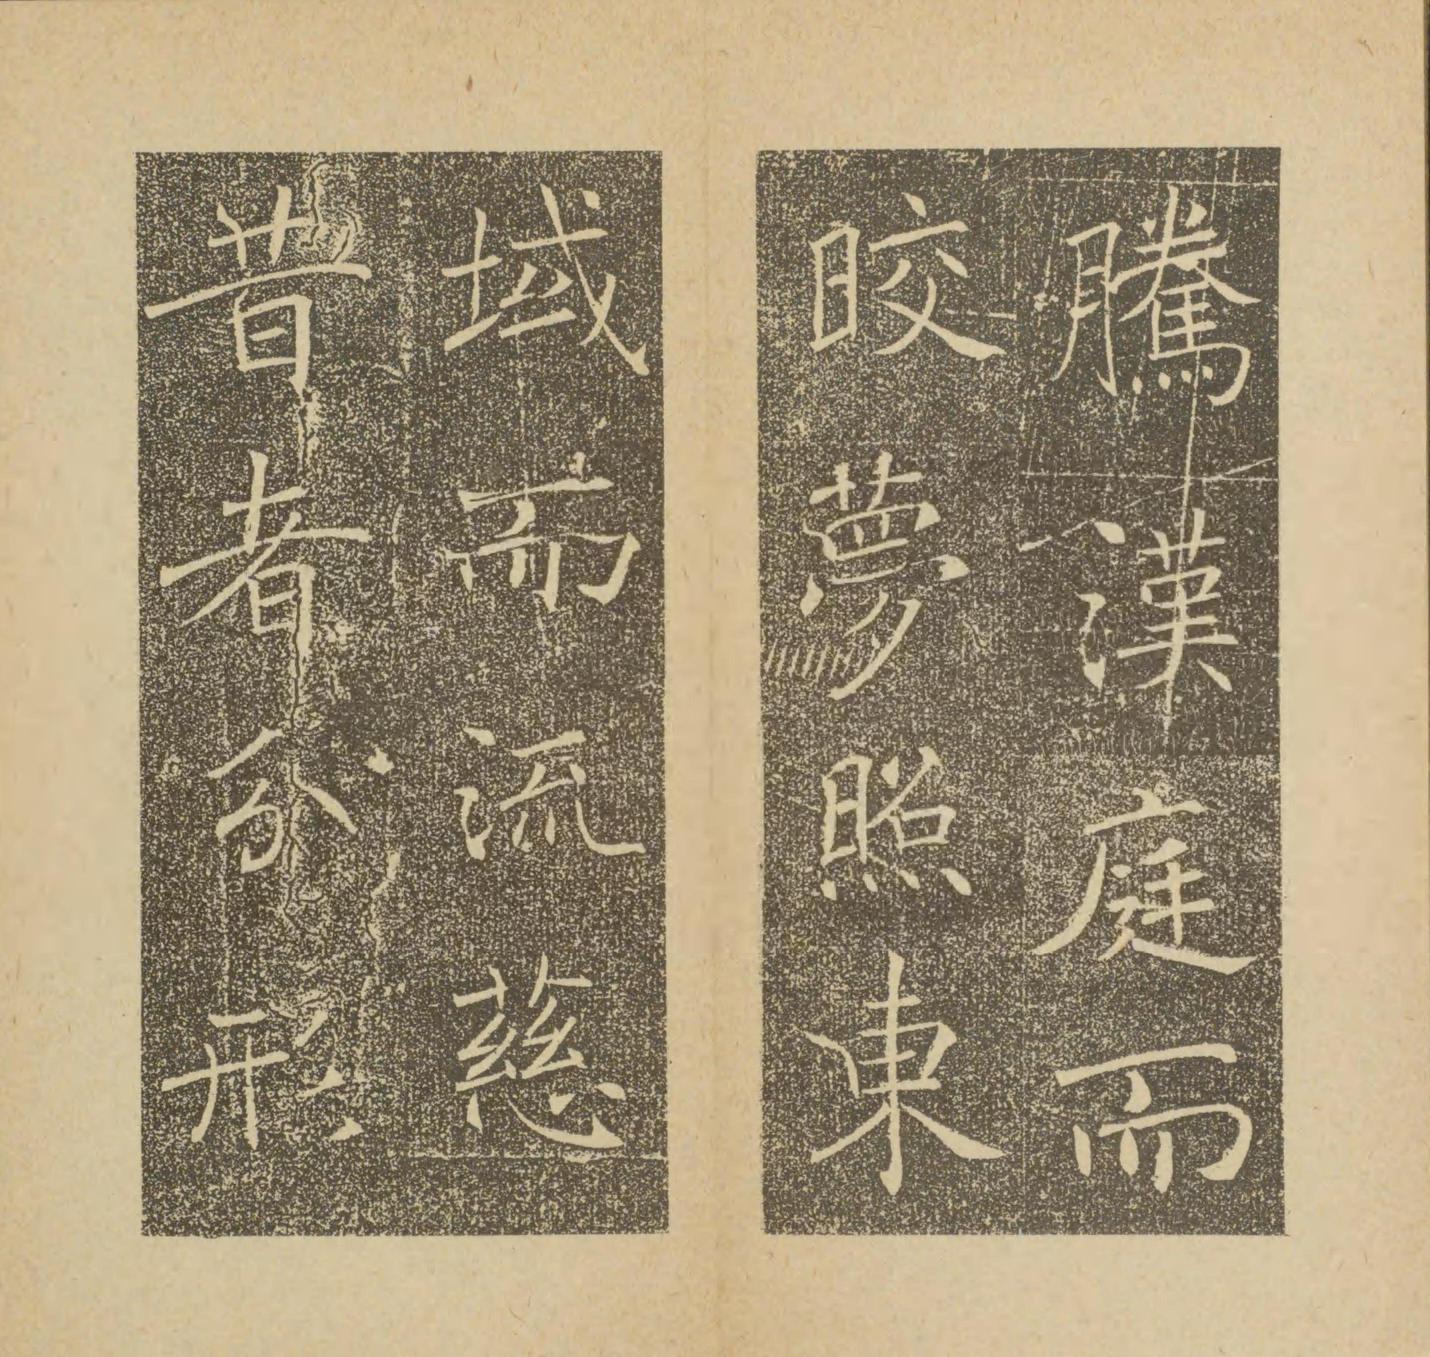 騰漢庭而
皎夢照東
域而流慈
昔者分形